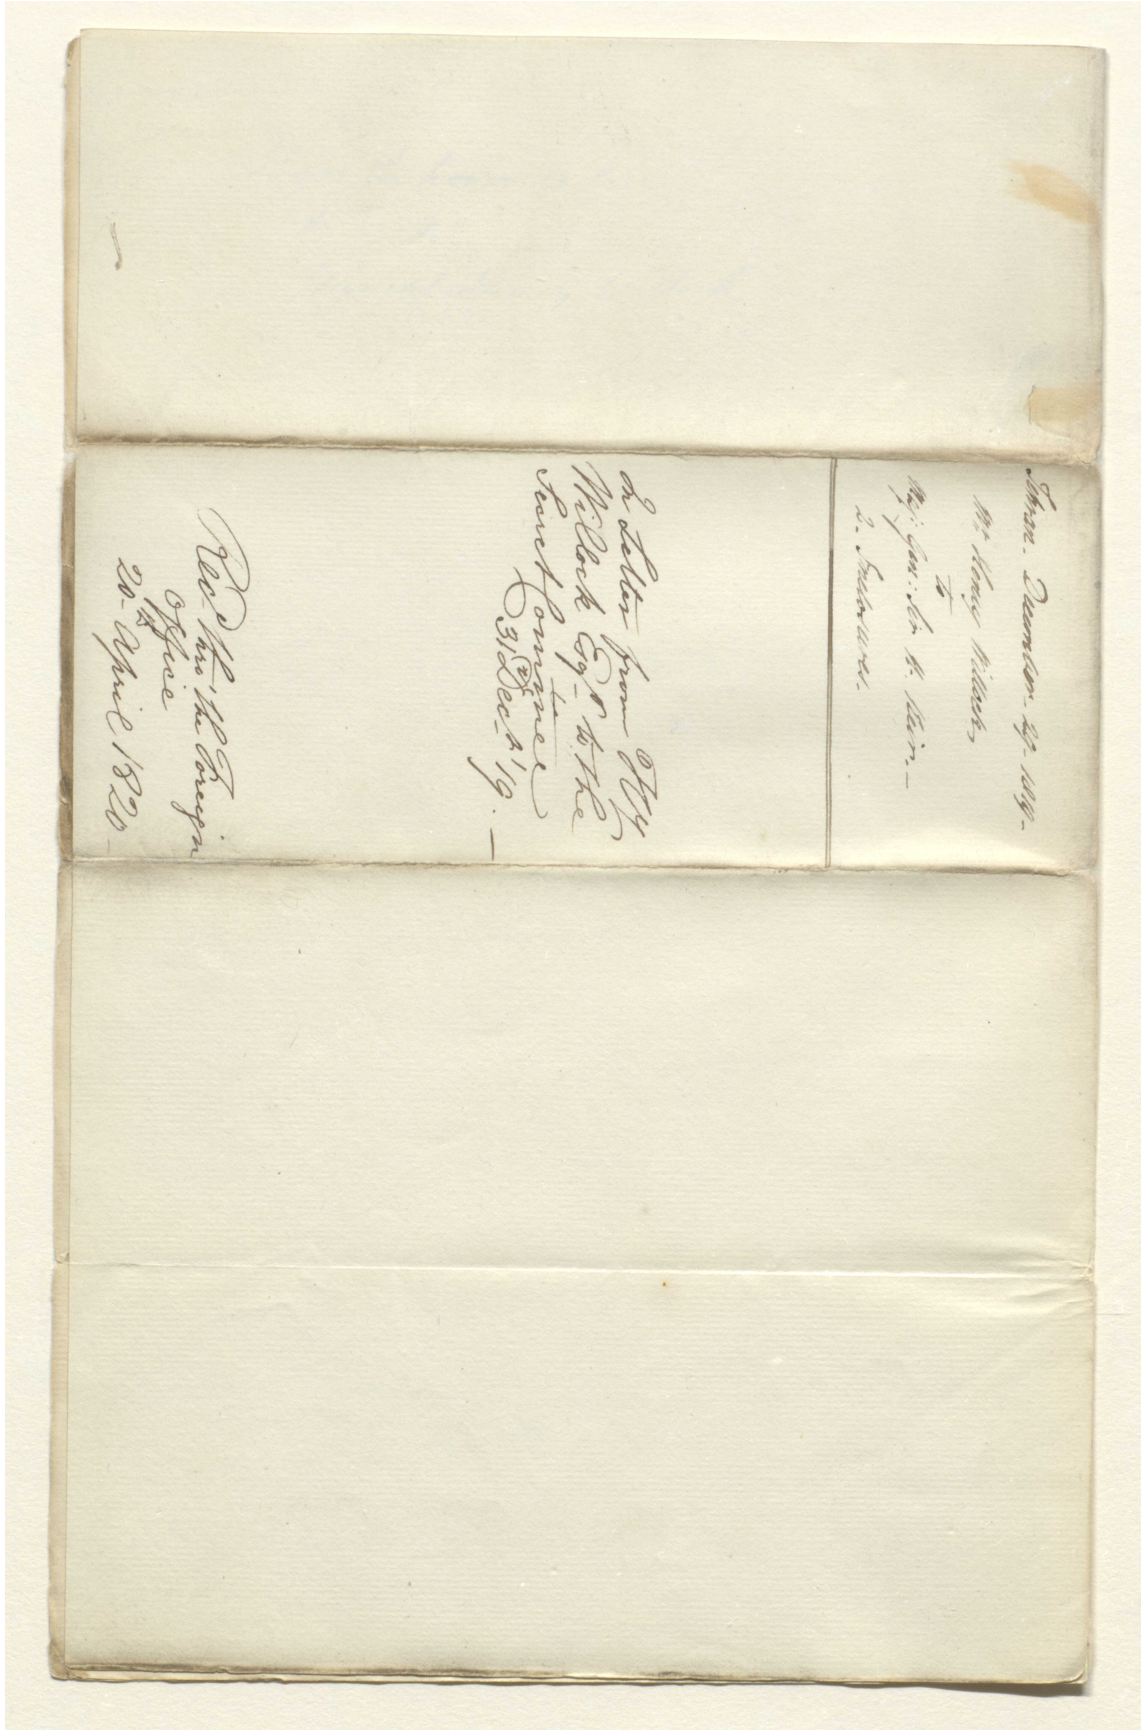 Tehran. December. 29. 1819.
Mr Henry Willock,
to
Maj: Gen: Sir W. Keir. —
2. Inclosures.
In Letter from Hy
Willock Esqr. to the
Secret Comm.ee
31 Dec.r '19. —
Rec.d thro' the Foreign
Office
20.th April 1820 —